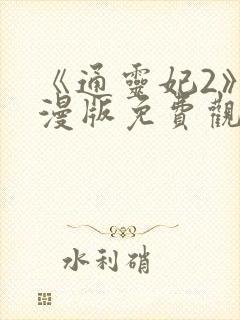 《通靈妃2》
漫版免費觀
水利硝